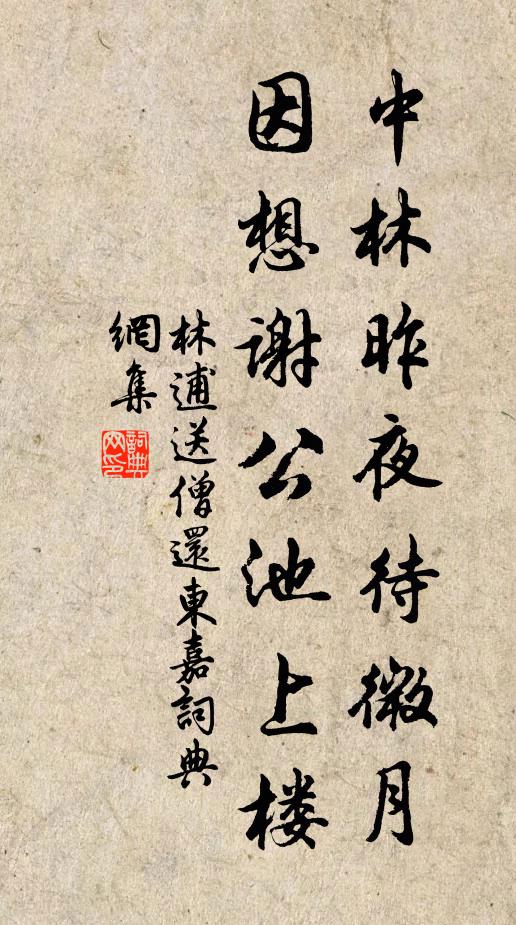 中林昨夜待微月
因想謝公池上楼
林逋送僧還東嘉詞典
網集
詞典网印